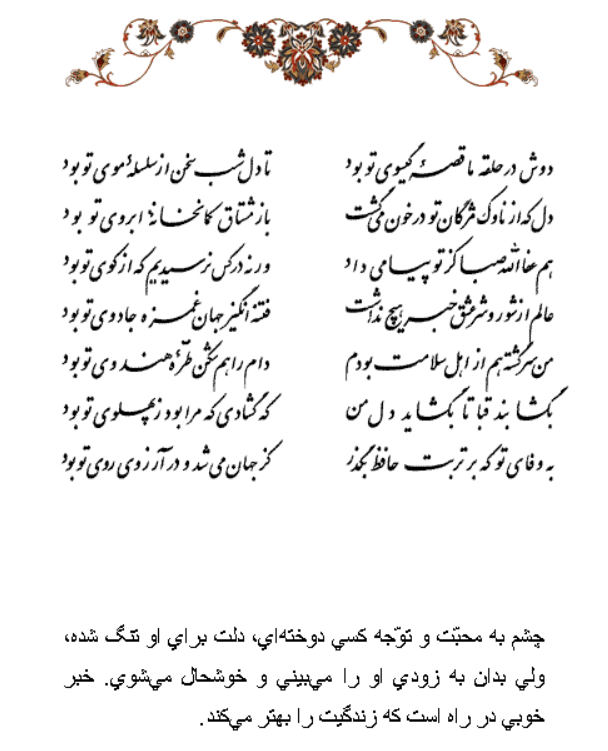 دوش در حلقه ما قصهٔ گیسوی تو بود تا دل شب سخن از سلسلهٔ موی تو بود
دل که از ناوک مژگان تو در خون می‌گشت باز مشتاق کمانخانهٔ ابروی تو بود
هم عفاالله صبا کز تو پیامی می‌داد ورنه در کس نرسیدیم که از کوی تو بود
عالم از شور و شر عشق خبر هیچ نداشت فتنه انگیز جهان غمزه جادوی تو بود
من سرگشته هم از اهل سلامت بودم دام راهم شکن طرهٔ هندوی تو بود
بگشا بند قبا تا بگشاید دل من که گشادی که مرا بود ز پهلوی تو بود
به وفای تو که بر تربت حافظ بگذر کز جهان می‌شد و در آرزوی روی تو بود
چشم به محبّت و توّجه کسي دوخته‌اي، دلت براي او تنگ شده،
ولي بدان به زودي او را مي‌بيني و خوشحال مي‌شوي. خبر
خوبي در راه است که زندگيت را بهتر مي‌کند.